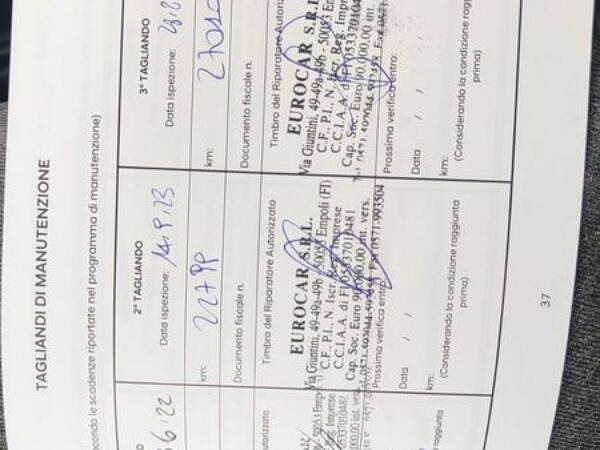 TAGLIANDI DI MANUTENZIONE
secondo le scadenze riportate nel programma di manutenzione)
6/22
Autorizzato
50053 Empoli
Imprese
05337010481
90.000,00 int. vers.
raggiunta
2° TAGLIANDO
Data ispezione: 14/9/23
km: 22799
Documento fiscale n.
Timbro del Riparatore Autorizzato
EUROCAR S.R.L.
Via Giuntini, 49-49a-49b - 50053 Empoli (FI)
C.F., P.I., N. Iscr. Reg. Imprese
C.C.I.A.A. di FI 05337010481
Cap. Soc. Euro 90.000,00 int. vers.
Fax 0571-993504
Prossima verifica entro:
Data / /
km:
(Considerando la condizione raggiunta
prima)
3° TAGLIANDO
Data ispezione:
km:
Documento fiscale n.
Timbro del Riparatore Autorizzato
EUROCAR S.R.L.
Via Giuntini, 49-49a-49b - 50053
C.F., P.I., N. Iscr. Reg. Imprese
C.C.I.A.A. di FI
Cap. Soc. Euro 90.000,00 int.
Prossima verifica entro:
Data / /
km:
(Considerando la condizione
prima)
37